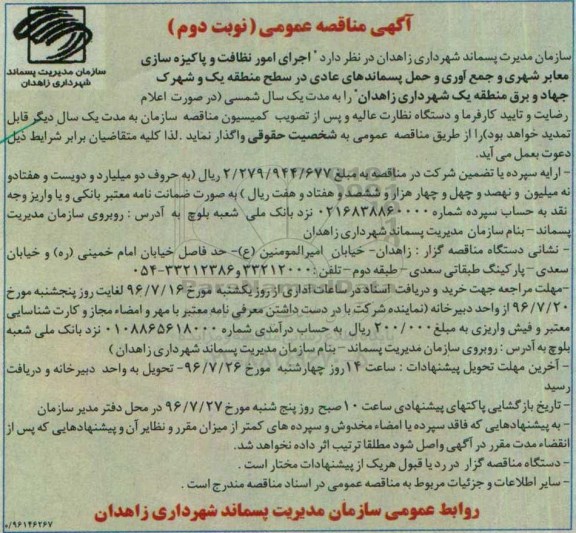 آگهی مناقصه عمومی (نوبت دوم)
سازمان مدیریت پسماند
شهرداری زاهدان
سازمان مدیرت پسماند شهرداری زاهدان در نظر دارد " اجرای امور نظافت و پاکیزه سازی
معابر شهری و جمع آوری و حمل پسماندهای عادی در سطح منطقه یک و شهرک
جهاد و برق منطقه یک شهرداری زاهدان" را به مدت یک سال شمسی (در صورت اعلام
رضایت و تایید کارفرما و دستگاه نظارت عالیه و پس از تصویب کمیسیون مناقصه سازمان به مدت یک سال دیگر قابل
تمدید خواهد بود)را از طریق مناقصه عمومی به شخصیت حقوقی واگذار نماید .لذا کلیه متقاضیان برابر شرایط ذیل
دعوت بعمل می آید.
- ارایه سپرده یا تضمین شرکت در مناقصه به مبلغ ۲/۲۷۹/۹۴۴/۶۷۷ ریال (به حروف دو میلیارد و دویست و هفتادو
نه میلیون و نهصد و چهل و چهار هزار و ششصد و هفتاد و هفت ریال ) به صورت ضمانت نامه معتبر بانکی و یا واریز وجه
نقد به حساب سپرده شماره ۰۲۱۶۸۳۸۸۶۰۰۰۰۰ نزد بانک ملی شعبه بلوچ به آدرس : روبروی سازمان مدیریت
پسماند – بنام سازمان مدیریت پسماند شهرداری زاهدان
- نشانی دستگاه مناقصه گزار : زاهدان- خیابان امیرالمومنین (ع)- حد فاصل خیابان امام خمینی (ره) و خیابان
سعدی – پارکینگ طبقاتی سعدی – طبقه دوم – تلفن : ۳۳۲۱۲۰۰۰و۳۳۲۱۲۳۸۶-۰۵۴
-مهلت مراجعه جهت خرید و دریافت اسناد در ساعات اداری از روز یکشنبه مورخ ۹۶/۷/۱۶ لغایت روز پنجشنبه مورخ
۹۶/۷/۲۰ از واحد دبیرخانه (نماینده شرکت با در دست داشتن معرفی نامه معتبر با مهر و امضاء مجاز و کارت شناسایی
معتبر و فیش واریزی به مبلغ ۲۰۰/۰۰۰ ریال به حساب درآمدی شماره ۰۱۰۸۸۶۵۶۱۸۰۰۰ نزد بانک ملی شعبه
بلوچ به آدرس : روبروی سازمان مدیریت پسماند – بنام سازمان مدیریت پسماند شهرداری زاهدان )
- آخرین مهلت تحویل پیشنهادات : ساعت ۱۴ روز چهارشنبه مورخ ۹۶/۷/۲۶- تحویل به واحد دبیرخانه و دریافت
رسید
- تاریخ بازگشایی پاکتهای پیشنهادی ساعت ۱۰ صبح روز پنج شنبه مورخ ۹۶/۷/۲۷ در محل دفتر مدیر سازمان
- به پیشنهادهایی که فاقد سپرده یا امضاء مخدوش و سپرده های کمتر از میزان مقرر و نظایر آن و پیشنهادهایی که پس از
انقضاء مدت مقرر در آگهی واصل شود مطلقا ترتیب اثر داده نخواهد شد.
- دستگاه مناقصه گزار در رد یا قبول هریک از پیشنهادات مختار است .
- سایر اطلاعات و جزئیات مربوط به مناقصه عمومی در اسناد مناقصه مندرج است .
روابط عمومی سازمان مدیریت پسماند شهرداری زاهدان
۰/۹۶۱۴۶۲۶۷